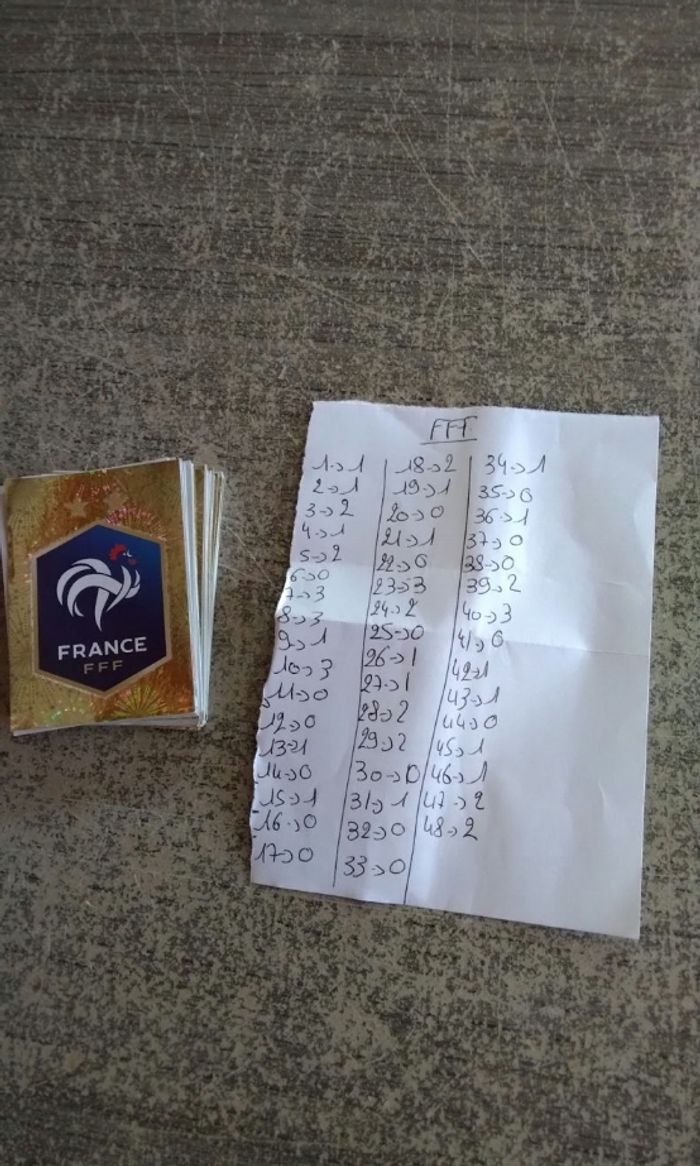 FRANCE
FFF
FFF
1->1
2->1
3->2
4->1
5->2
6->0
7->3
8->3
9->1
10->3
11->0
12->0
13->1
14->0
15->1
16->0
17->0
18->2
19->1
20->0
21->1
22->0
23->3
24->2
25->0
26->1
27->1
28->2
29->2
30->0
31->1
32->0
33->0
34->1
35->0
36->1
37->0
38->0
39->2
40->3
41->0
42->1
43->1
44->0
45->1
46->1
47->2
48->2